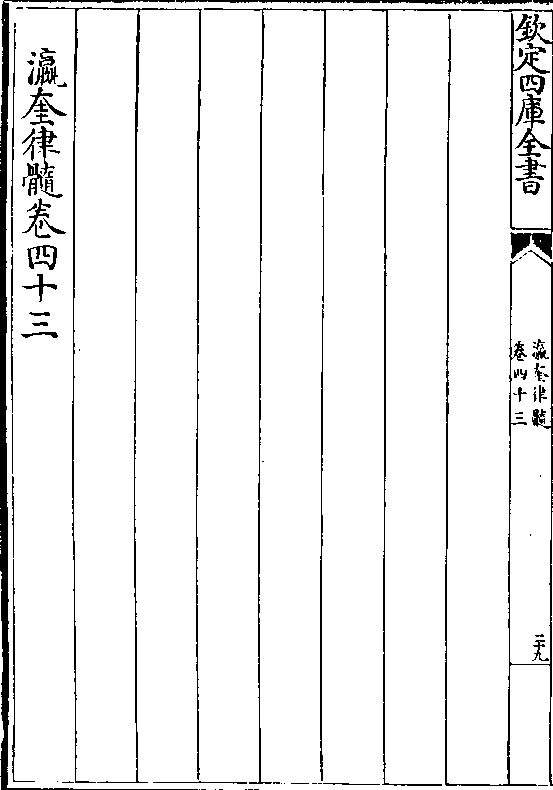 欽定四庫全書
瀛奎律髓
卷四十三
二十九
瀛奎律髓卷四十三